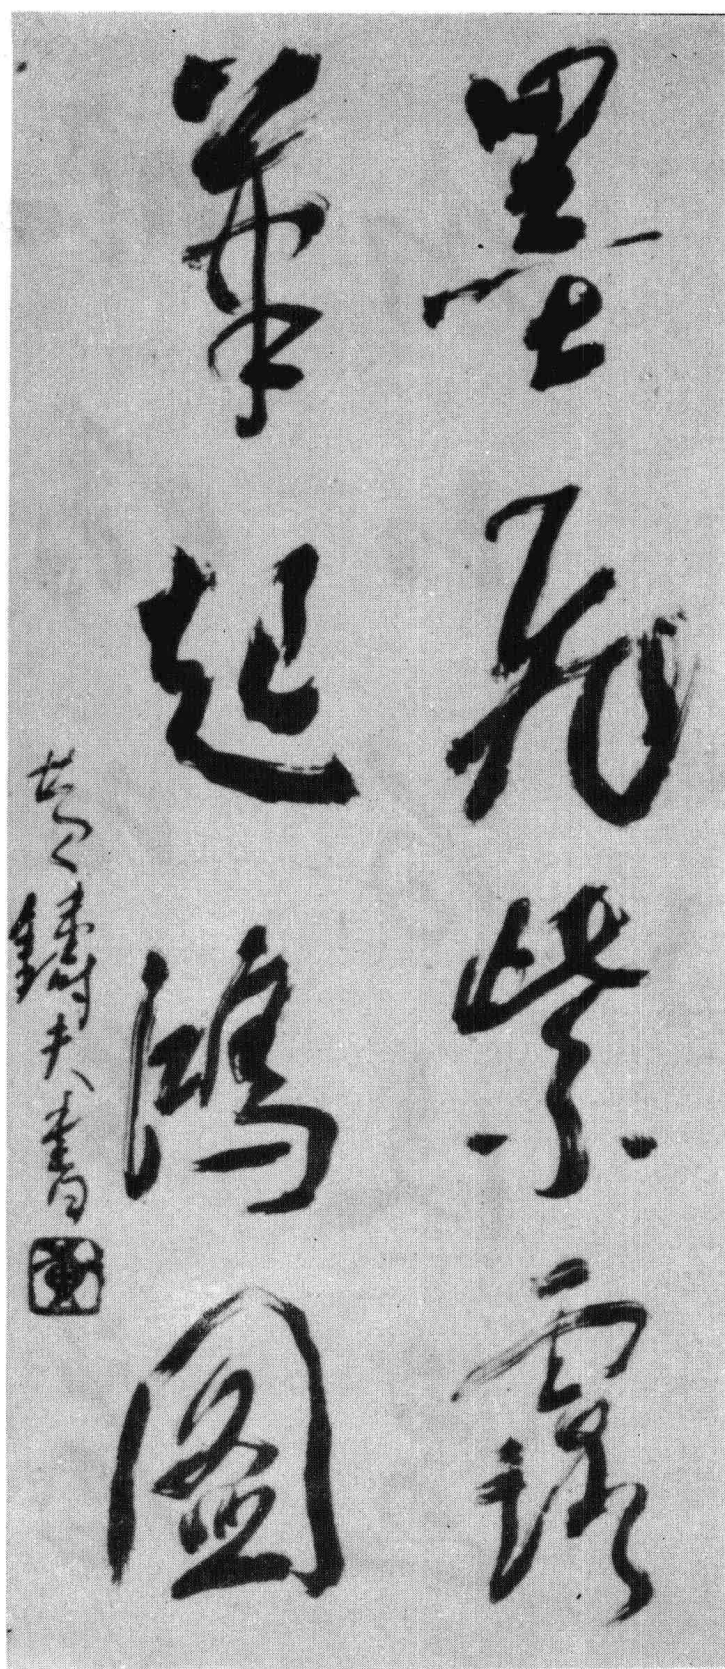 墨飛紫露
筆起鴻圖
鑄夫書